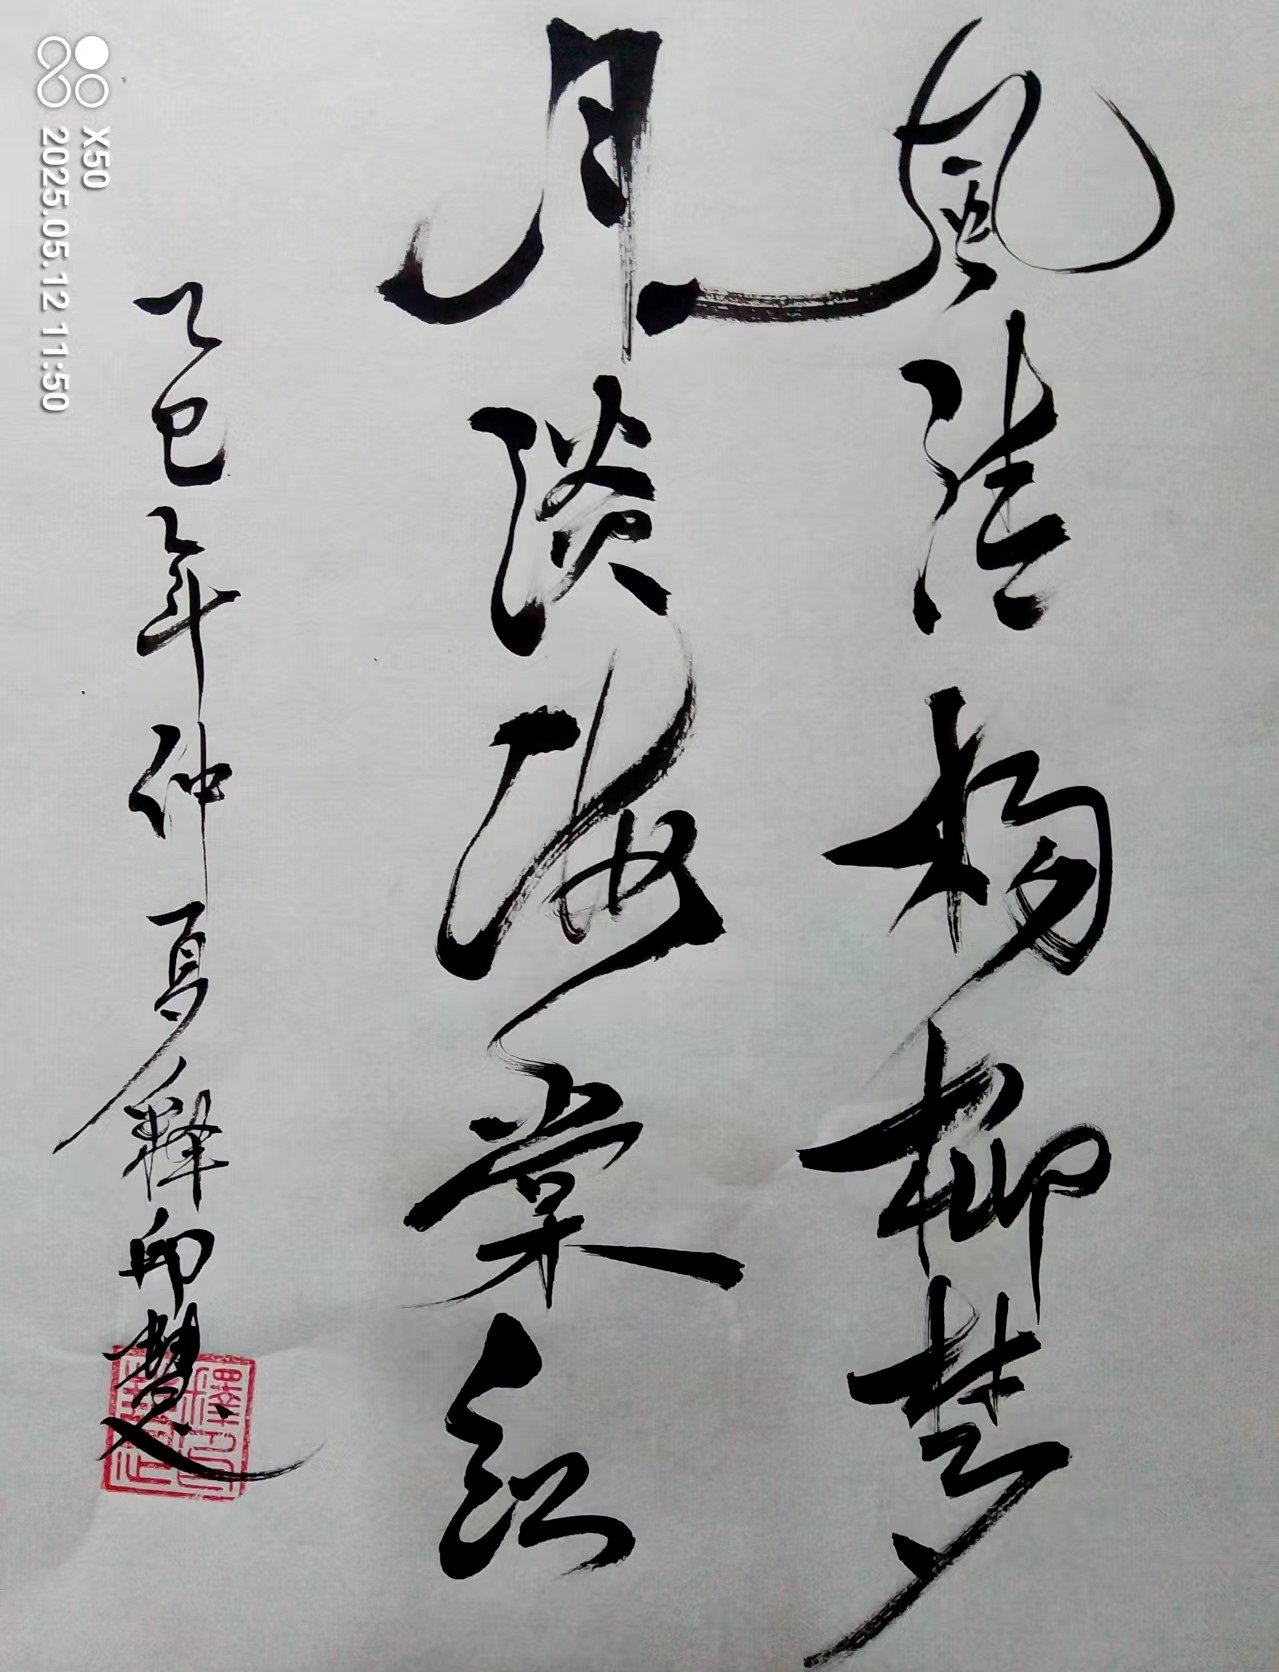 風清杨柳夢
月淡海棠红
乙巳年仲夏释印慧
X50
2025.05.12 11:50